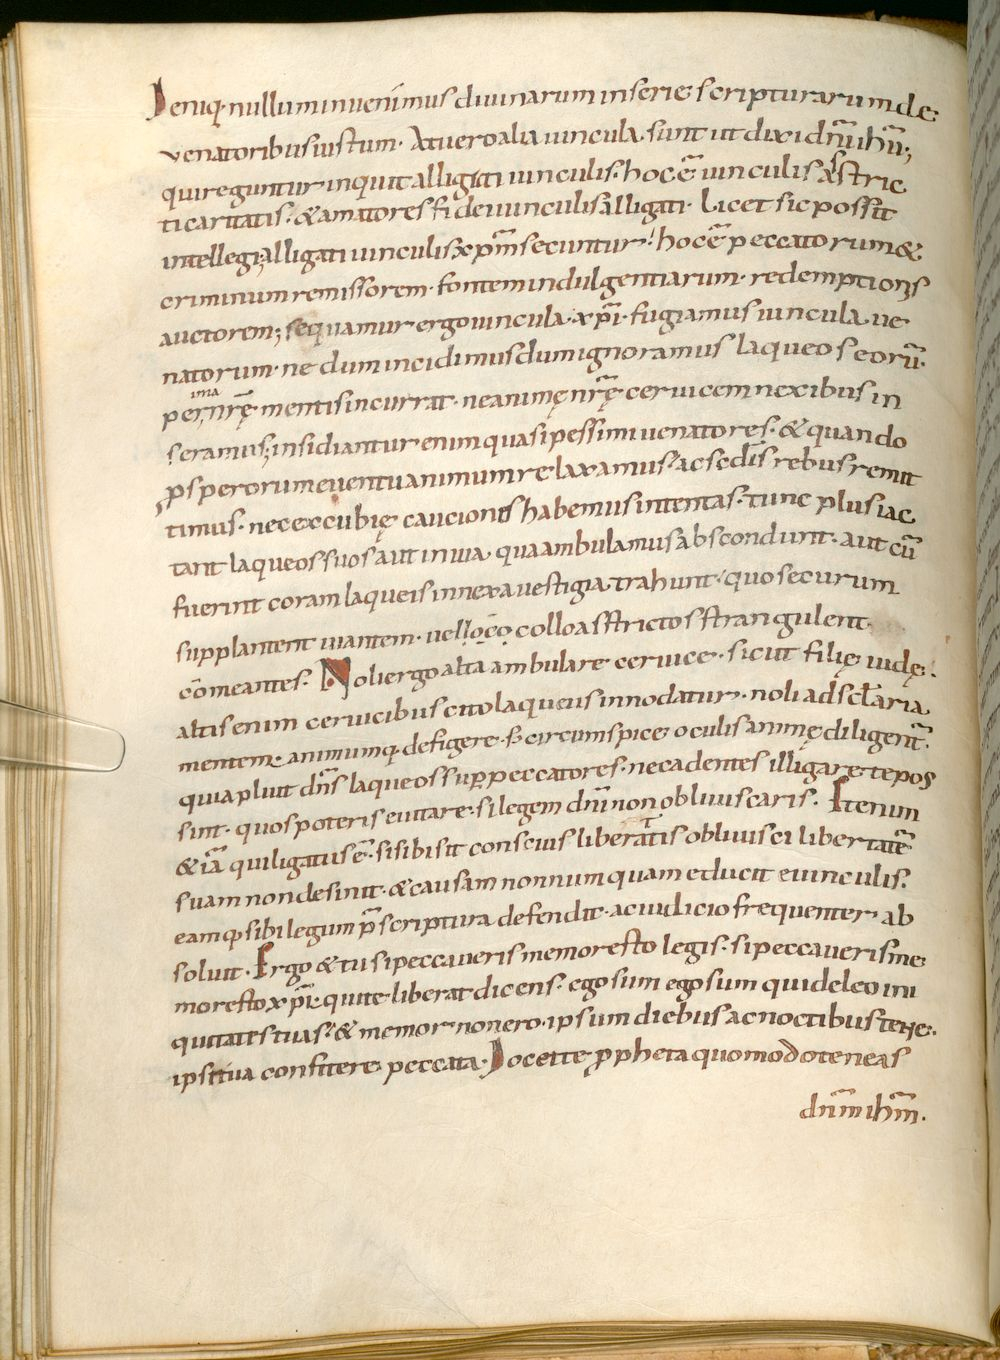 Deniq· nullum invenimus divinarum in serie scripturarum de
venatoribus iustum· At vero alia vincula sunt ut dixi dñi ihū;
qui reguntur inquit alligati vinculis· hoc ē vinculis astric
ti caritatis· & amatores fidei vinculis alligati· Licet sic possit
intellegi; alligati vinculis xp̄m secuntur! hoc ē peccatorum &
criminum remissorem· fontem indulgentiarum· redemptionis
auctorem; sequamur ergo vincula xp̄i· fugiamus vincula ve
natorum· ne dum incidimus dum ignoramus laqueos eorū·
ima
per; nr̄ę mentis incurrat· ne animę nr̄ę cervicem nexibus in
seramus; insidiantur enim quasi pessimi venatores· & quando
prosperorum eventu animum relaxamus· ac sēclis rebus remit
timus· nec excubię caucionis habemus intentas· tunc plus iac
tant laqueos suos aut in via qua ambulamus abscondunt· aut cū
fuerint coram laqueis innexa vestigia trahunt· quo securum
supplantent viantem· vel loco collo astrictos strangulent
cōmeantes· Noli ergo alta ambulare cervice· sicut filię iudę·
altis enim cervicibus cito laqueus innodatur· noli ad sclaria
mentem animumq· defigere· s; circumspice oculis animę diligent̄·
quia pluit dñs laqueos super peccatores· nec adentes illigare te pos
sint· quos poteris evitare· si legem dñi non obliviscaris· Iterum
t
& iā qui ligatus ē· si sibi sit conscius liberatis oblivisci libertatē
suam non desinit· & causam nonnumquam educit e vinculis·
eamq· sibi legum p̄scriptura defendit· ac iudicio frequenter ab
solvit· Ergo & tu si peccaveris memor esto legis· si peccaveris me
mor esto xp̄i· qui te liberat dicens· ego sum ego sum qui deleo ini
quitates tuas· & memor non ero· ipsum diebus ac noctibus tene·
ipsi tua confitere peccata· Docet te propheta quomodo teneas
dñm ihm̄·